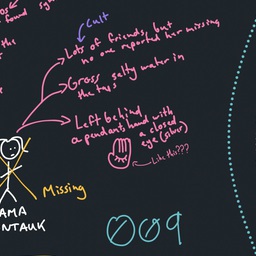 found
Cult
the
Lots of friends, but
no one reported her missing
Gross salty water in
the tubs
Left behind
a pendant hand with
a closed
eye (silver)
Like this???
Missing
AMA
NTAUK
009